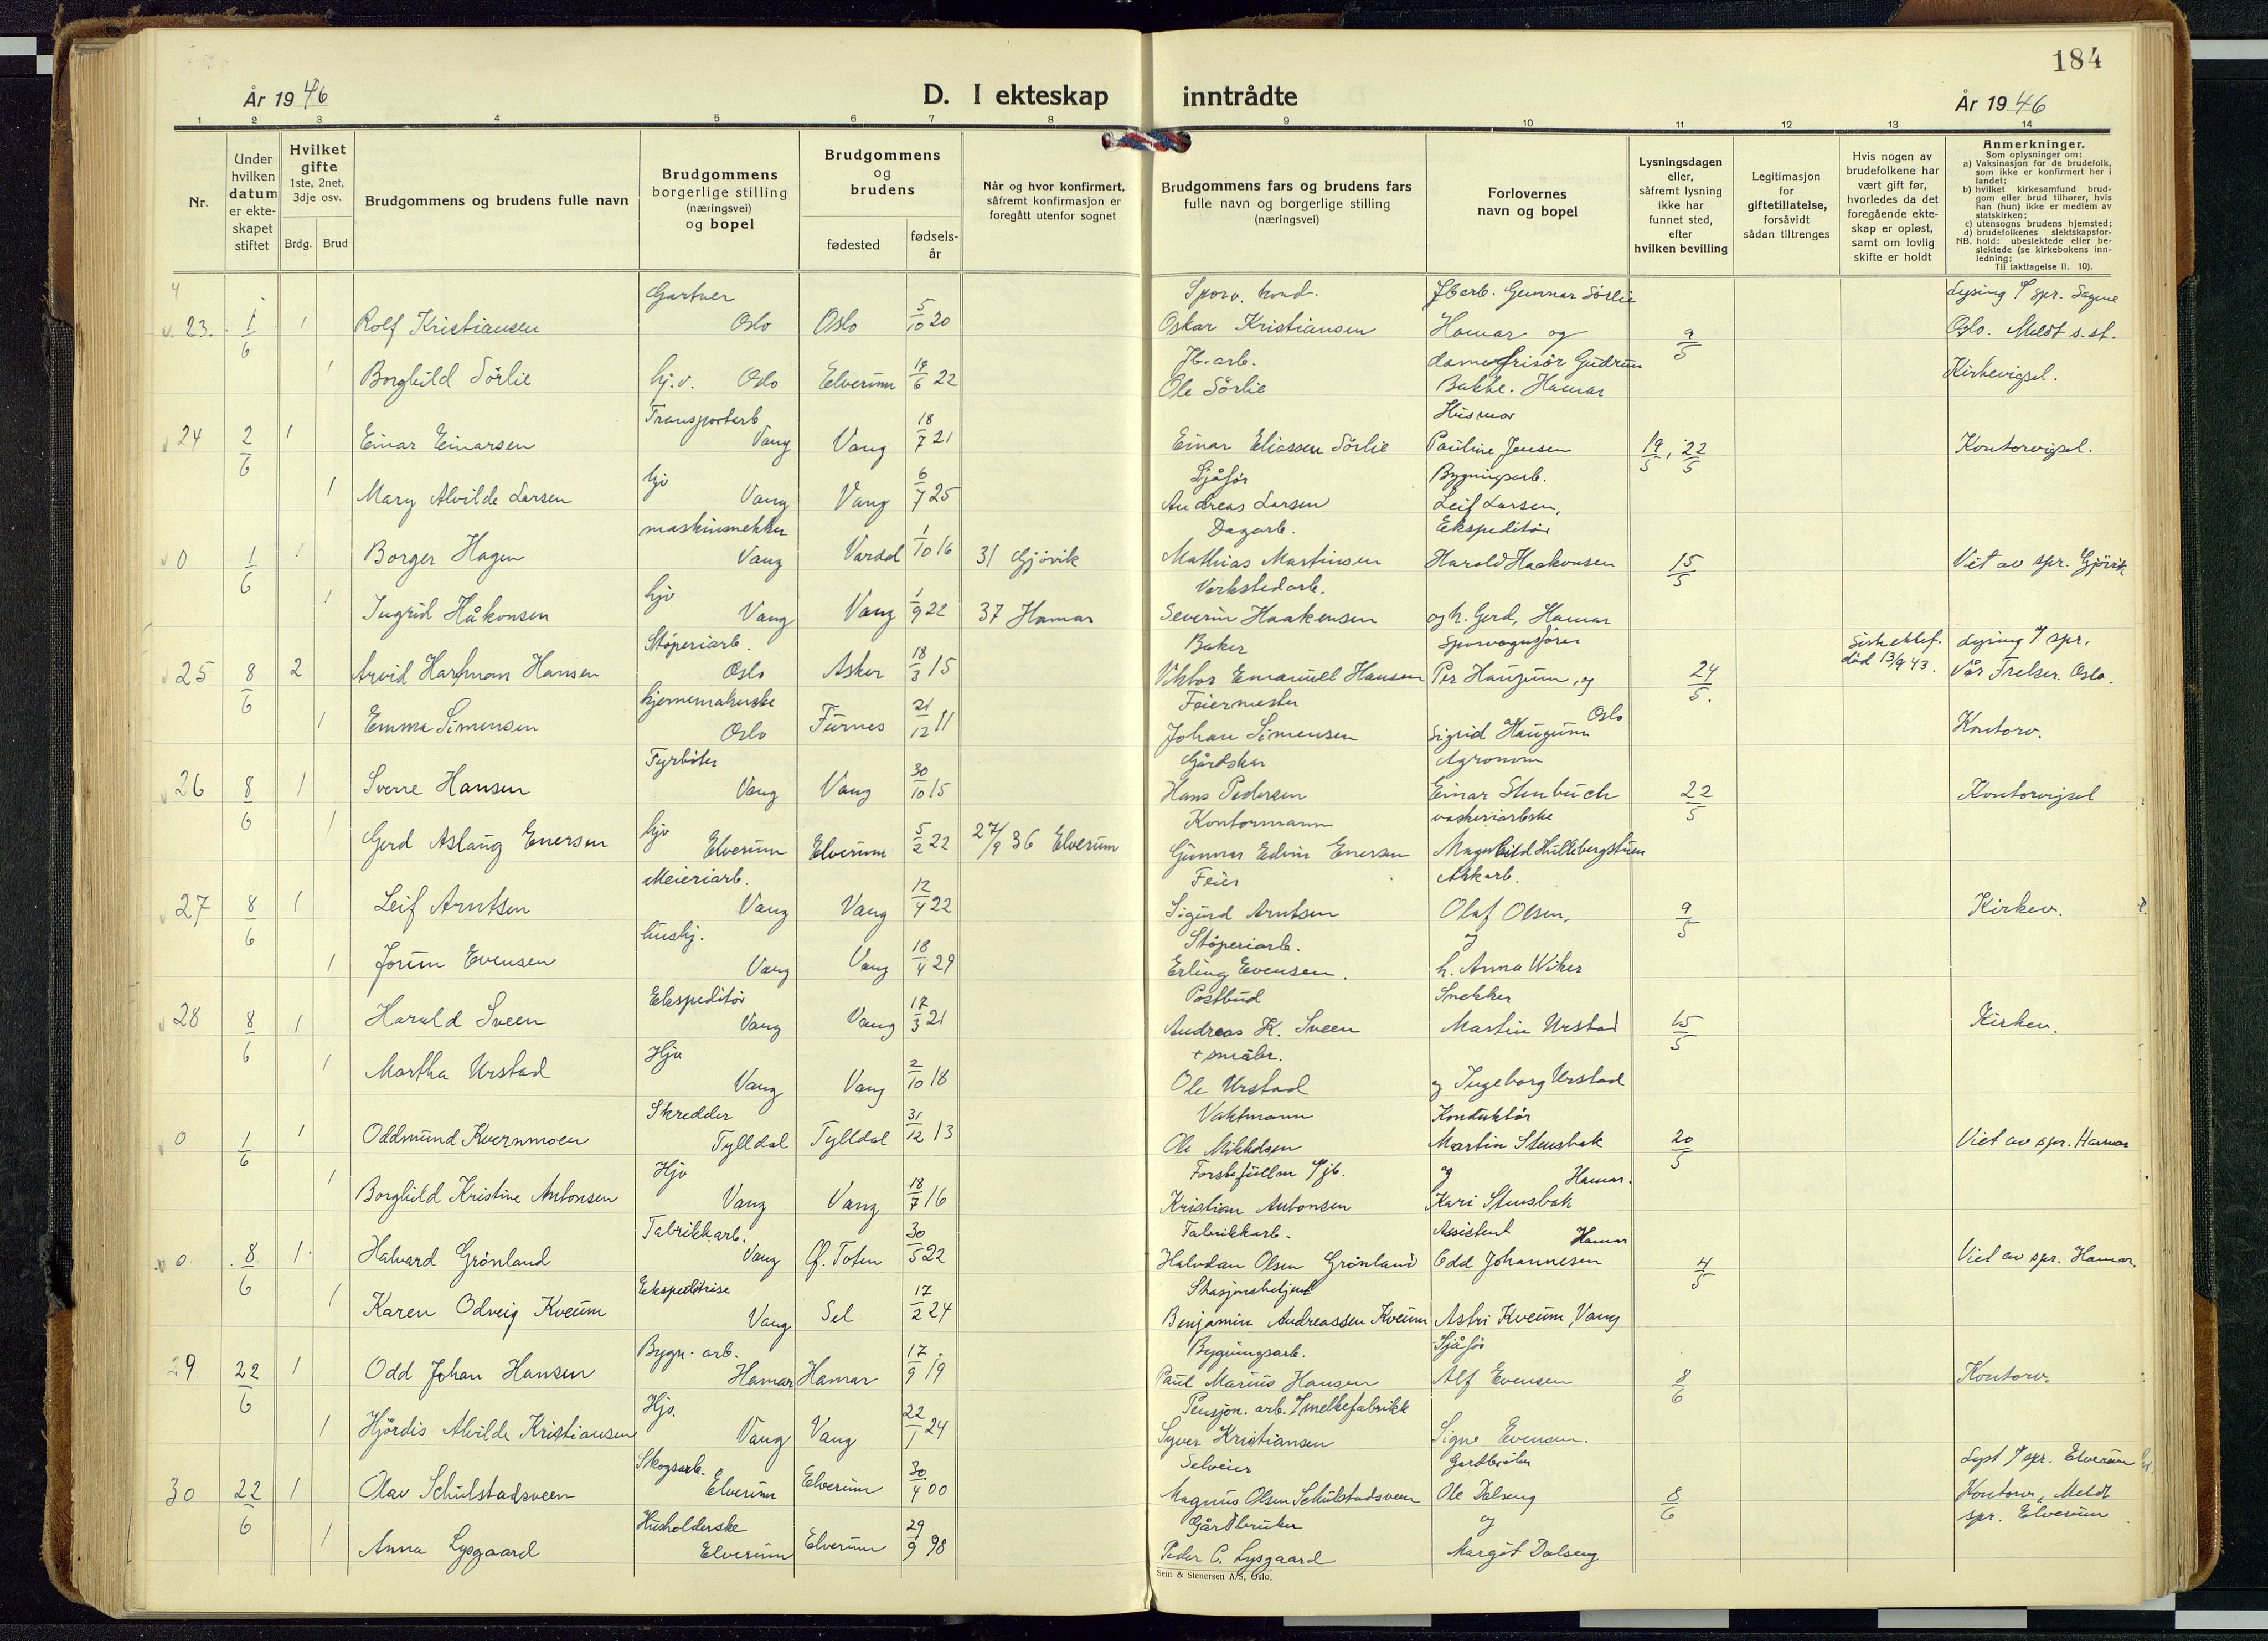 184
År 1946 D. I ekteskap inntrådte År 1946
1 2 3 4 5 6 7 8 9 10 11 12 13 14
Nr.
Under hvilken datum er ekteskapet stiftet
Hvilket gifte 1ste, 2net, 3dje osv.
Brdg. Brud
Brudgommens og brudens fulle navn
Brudgommens borgerlige stilling (næringsvei) og bopel
Brudgommens og brudens
fødested fødselsår
Når og hvor konfirmert, såfremt konfirmasjon er foregått utenfor sognet
Brudgommens fars og brudens fars fulle navn og borgerlige stilling (næringsvei)
Forlovernes navn og bopel
Lysningsdagen eller, såfremt lysning ikke har funnet sted, efter hvilken bevilling
Legitimasjon for giftetillatelse, forsåvidt sådan tiltrenges
Hvis nogen av brudefolkene har vært gift før, hvorledes da det foregående ekteskap er opløst, samt om lovlig skifte er holdt
Anmerkninger.
Som oplysninger om:
a) Vaksinasjon for de brudefolk, som ikke er konfirmert her i landet;
b) hvilket kirkesamfund brudgom eller brud tilhører, hvis han (hun) ikke er medlem av statskirken;
c) utensogns brudens hjemsted;
d) brudefolkenes slektskapsforhold: ubeslektede eller beslektede (se kirkebokens innledning;
NB. Til iakttagelse II. 10).
Gartner Sporv. kond. Jb.arb. Gunnar Sørlie Lysing v/ spr. Sagene
23. 1/6 1 Rolf Kristiansen Oslo Oslo 5/10 20 Oskar Kristiansen Hamar og 9/5 Oslo. Meldt s.st.
Jb.arb. damefrisør Gudrun
1 Borghild Sørlie hj.v. Oslo Elverum 19/6 22 Ole Sørlie Bakke. Hamar Kirkevigsel.
Transportarb Husmor
24 2/6 1 Einar Einarsen Vang Vang 18/7 21 Einar Eliassen Sørlie Pauline Jensen 19/5, 22/5 Kontorvigsel.
hjv Sjåfør Bygningsarb.
1 Mary Alvilde Larsen Vang Vang 6/7 25 Andreas Larsen Leif Larsen,
maskinsnekker Dagarb. Ekspeditør
0 1/6 1 Borger Hagen Vang Vardal 1/10 16 31 Gjøvik Mathias Martinsen Harald Haakonsen 15/5 Viet av spr. Gjøvik
hjv Verkstedarb.
1 Ingrid Håkonsen Vang Vang 1/9 22 37 Hamar Severin Haakensen og h. Gerd, Hamar
Støperiarb. Baker Sporvognsfører Siste ektef. Lysing v/ spr.
25 8/6 2 Arvid Hartman Hansen Oslo Asker 18/3 15 Viktor Emanuell Hansen Per Haugum, og 24/5. død 13/9 43. Vår Frelser. Oslo.
Feiermester Oslo
1 Emma Simensen Oslo Furnes 21/12 11 Johan Simensen Sigrid Haugum Kontorv.
Fyrbøter Agronom
26 8/6 1 Sverre Hansen Vang Vang 30/10 15 Hans Pedersen Einar Stenbuch 22/5 Kontorvigsel
hjv Kontormann
1 Gerd Aslaug Enersen Elverum Elverum 5/2 22 27/9 36 Elverum Gunnar Edvin Enersen
Meieriarb. Feier
27 8/6 1 Leif Arntsen Vang Vang 12/4 22 Sigurd Arntsen Olaf Olsen, 9/5 Kirkev.
hushj. Støperiarb. og
1 Jorun Evensen Vang Vang 18/4 29 Erling Evensen. h. Anna Wiker
Ekspeditør Postbud Snekker
28 8/6 1 Harald Sveen Vang Vang 17/3 21 Andreas K. Sveen Martin Urstad 15/5 Kirkev.
Hjv + småbr.
1 Martha Urstad Vang Vang 2/10 18 Ole Urstad og Ingeborg Urstad
Skredder Vaktmann Konduktør
0 1/6 1 Oddmund Kvernmoen Tylldal Tylldal 31/12 13 Ole Mikkelsen Martin Stensbak 20/5 Viet av spr. Hamar
Hjv og Hamar.
1 Borghild Kristine Antonsen Vang Vang 18/7 16 Kristian Antonsen Kari Stensbak
Fabrikkarb. Fabrikkarb. Assistent Hamar
0 8/6 1 Halvard Grönland Vang Ø. Toten 30/5 22 Halvdan Olsen Grönland Odd Johannesen 4/5 Viet av spr. Hamar.
Ekspeditrise Stasjonsbetjent
1 Karen Odveig Kveum Vang Sel 17/2 24 Benjamin Andreassen Kveum Astri Kveum, Vang
Bygn. arb. Bygningsarb. Sjåfør
29 22/6 1 Odd Johan Hansen Hamar Hamar 17/9 19 Paul Marius Hansen Alf Evensen 8/6 Kontorv.
Hjv. Pensjon. arb. v/ melkefabrikk
1 Hjördis Alvilde Kristiansen Vang Vang 22/1 24 Syver Kristiansen Signe Evensen.
Skogsarb. Selveier Gardbruker Lyst v/ spr. Elverum
30 22/6 1 Olav Schulstadsveen Elverum Elverum 30/4 00 Magnus Olsen Schulstadsveen Ole Dalseng 8/6 Kontorv, Meldt
Husholderske Gårdbruker og spr. Elverum
1 Anna Lysgaard Elverum Elverum 29/9 98 Peder C. Lysgaard Margit Dalseng
Sem & Stenersen A/S, Oslo.